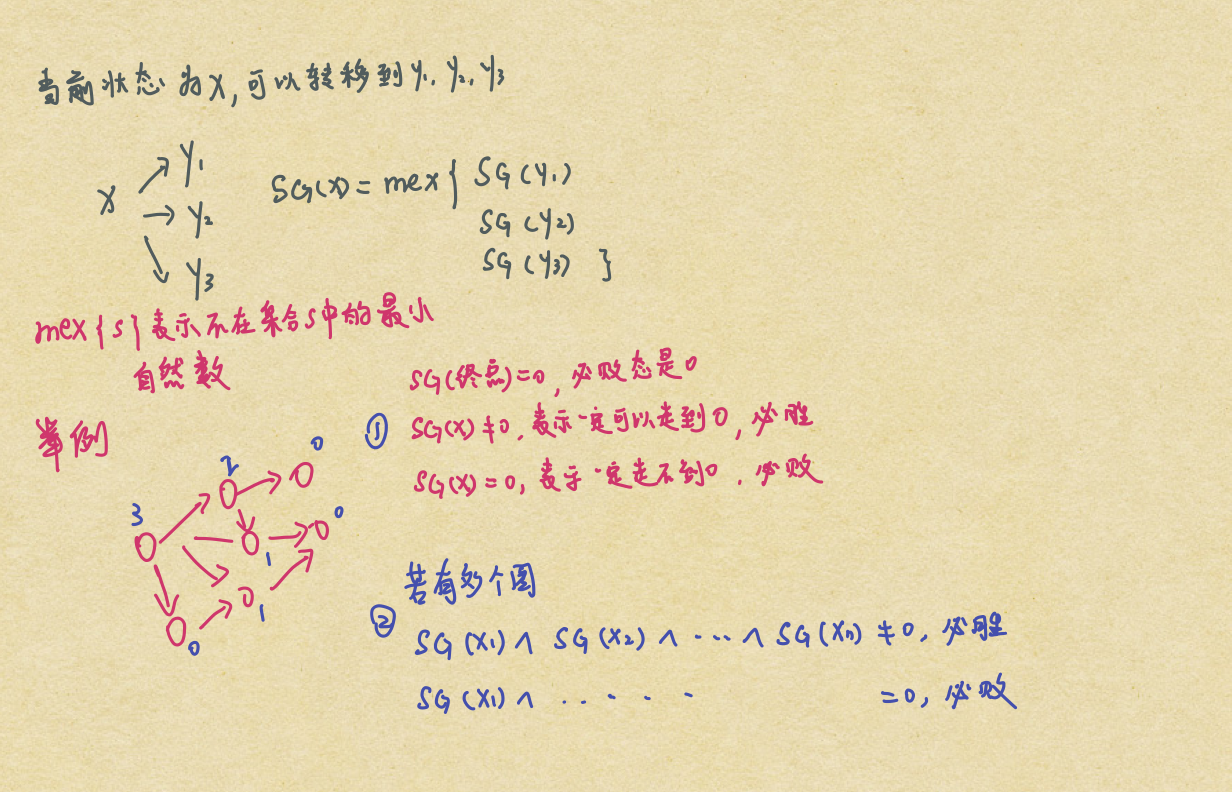 当前状态为X,可以转移到Y₁,Y₂,Y₃
X
Y₁
Y₂
Y₃
SG(X)=mex{ SG(Y₁)
SG(Y₂)
SG(Y₃) }
mex{S}表示不在集合S中的最小
自然数
SG(终点)=0,必败态是0
① SG(X)≠0,表示一定可以走到0,必胜
SG(X)=0,表示一定走不到0,必败
举例
0
2
3
0
1
1
0
若有多个图
② SG(X₁)∧SG(X₂)∧…∧SG(Xn)≠0,必胜
SG(X₁)∧.....=0,必败